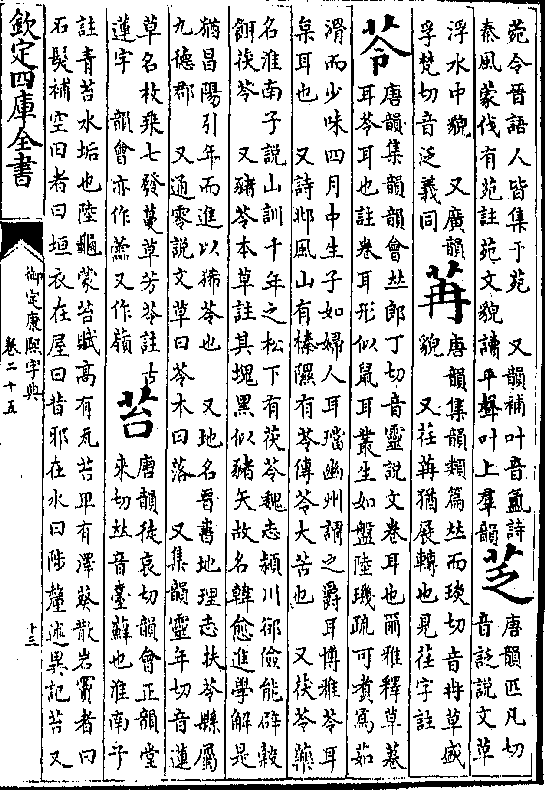 苑令晉語人皆集于苑　又韻補叶音氳詩
秦風蒙伐有苑註苑文貌讀平聲叶上羣韻
芝
唐韻匹凡切
音䒦說文草
浮水中貌　又廣韻
孚梵切音泛義同
苒
唐韻集韻類篇𠀤而琰切音冉草盛
貌　又荏苒猶展轉也見荏字註
苓
唐韻集韻韻會𠀤郎丁切音靈說文卷耳也爾雅釋草菤
耳苓耳也註卷耳形似鼠耳叢生如盤陸璣疏可煑爲茹
滑而少味四月中生子如婦人耳璫幽州謂之爵耳博雅苓耳
枲耳也　又詩邶風山有榛隰有苓傳苓大苦也　又茯苓藥
名淮南子說山訓千年之松下有茯苓魏志潁川郤儉能辟穀
餌茯苓　又豬苓本草註其塊黑似豬矢故名韓愈進學解是
猶昌陽引年而進以豨苓也　又地名晉書地理志扶苓縣屬
九德郡　又通零說文草曰苓木曰落　又集韻靈年切音蓮
草名枚乘七發蔓草芳苓註古
蓮字　韻會亦作蘦又作𦿉
苔
唐韻徒哀切韻會正韻堂
來切𠀤音臺蘚也淮南子
註青苔水垢也陸龜蒙苔賦高有瓦苔卑有澤葵散岩竇者曰
石髮補空田者曰垣衣在屋曰昔邪在水曰陟釐述異記苔又
欽定四庫全書
御定康熙字典
卷二十五
十三